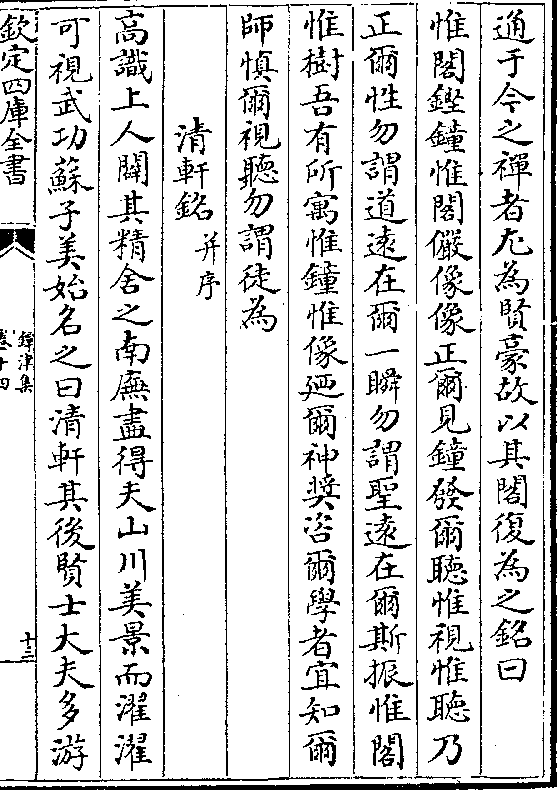 通于今之禪者尤為賢豪故以其閣復為之銘曰
惟閣鏗鐘惟閣儼像像正爾見鐘發爾聽惟視惟聽乃
正爾性勿謂道遠在爾一瞬勿謂聖遠在爾斯振惟閣
惟樹吾有所寓惟鐘惟像廼爾神奬咨爾學者宜知爾
師慎爾視聽勿謂徒為
清軒銘并序
高識上人闢其精舍之南廡盡得夫山川美景而濯濯
可視武功蘇子美始名之曰清軒其後賢士大夫多游
欽定四庫全書
鐔津集
卷十四
十三